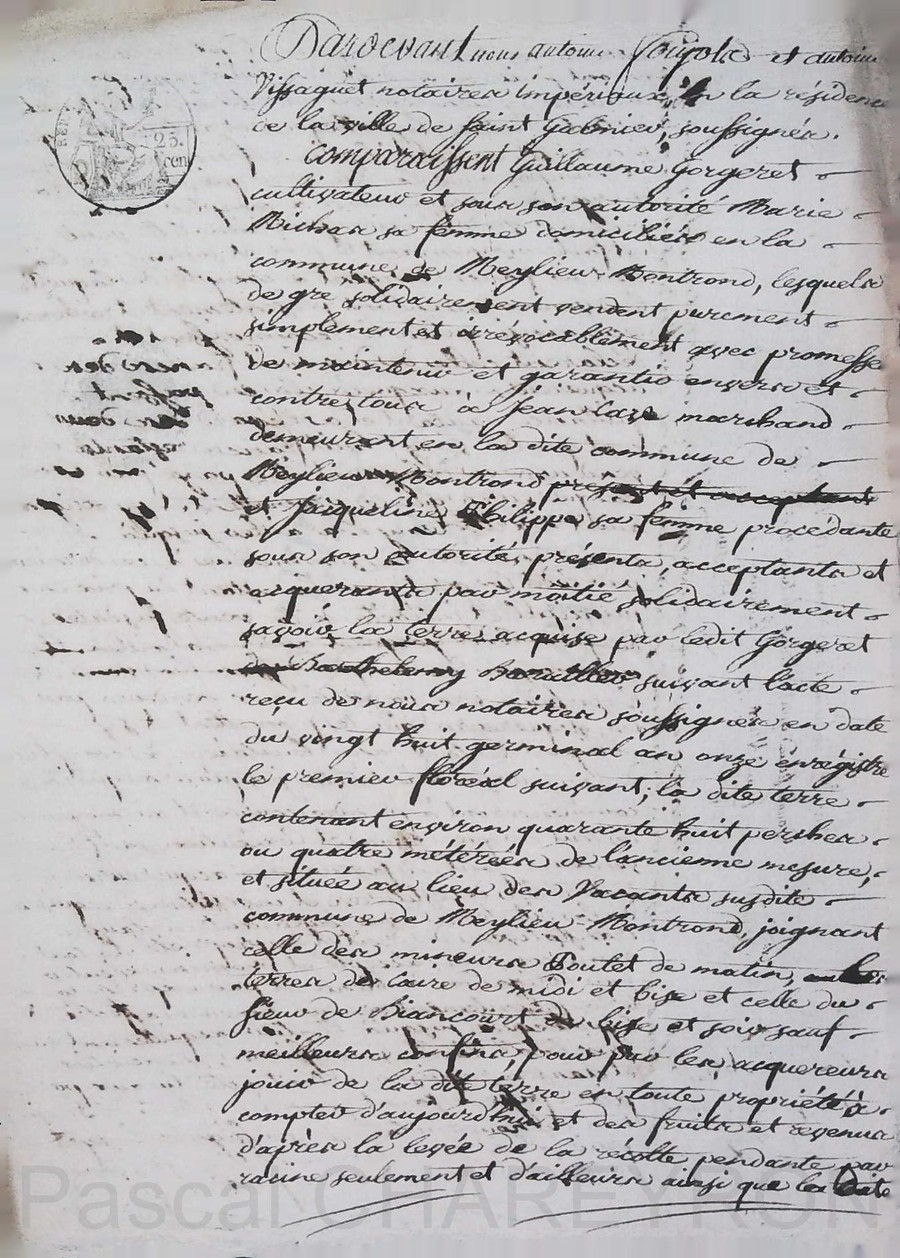 Pardevant nous antoine et antoine
Vissaguet notaires impériaux à la résidence
de la ville de saint Galmier, soussignés.
comparaissent Guillaume Gorgeret
cultivateur et sous son autorité Marie
Richar sa femme domiciliés en la
commune de Meylieu-Montrond, lesquels
de gre solidairement vendent purement
simplement et irrévocablement avec promesse
de maintenir et garantir envers et
contre tous à jean marchand
demeurant en la dite commune de
Meylieu Montrond present et acceptant
et jacqueline Philippe sa femme procedante
sous son autorité, présents, acceptants et
acquerants par moitié solidairement
savoir la terre acquise par ledit Gorgeret
de Barthelemy suivant l'acte
reçu de nous notaires soussignés en date
du vingt huit germinal an onze énrégistré
le premier floréal suivant; la dite terre
contenant environ quarante huit perches
ou quatre métérées de lancienne mesure,
et située au lieu des Vacants susdite
commune de Meylieu-Montrond, joignant
celle des mineurs Boutet de matin,
terres de de midi et bise et celle du
sieur de Biancourt de bise et soir sauf
meilleurs confins, pour par les acquereurs
jouir de la dite terre en toute propriété à
compter d'aujourd'hui et des fruits et revenus
d'après la levée de la récolte pendante par
racine seulement et d'ailleurs ainsi que les
25.
cen
Pascal CHAREYRON